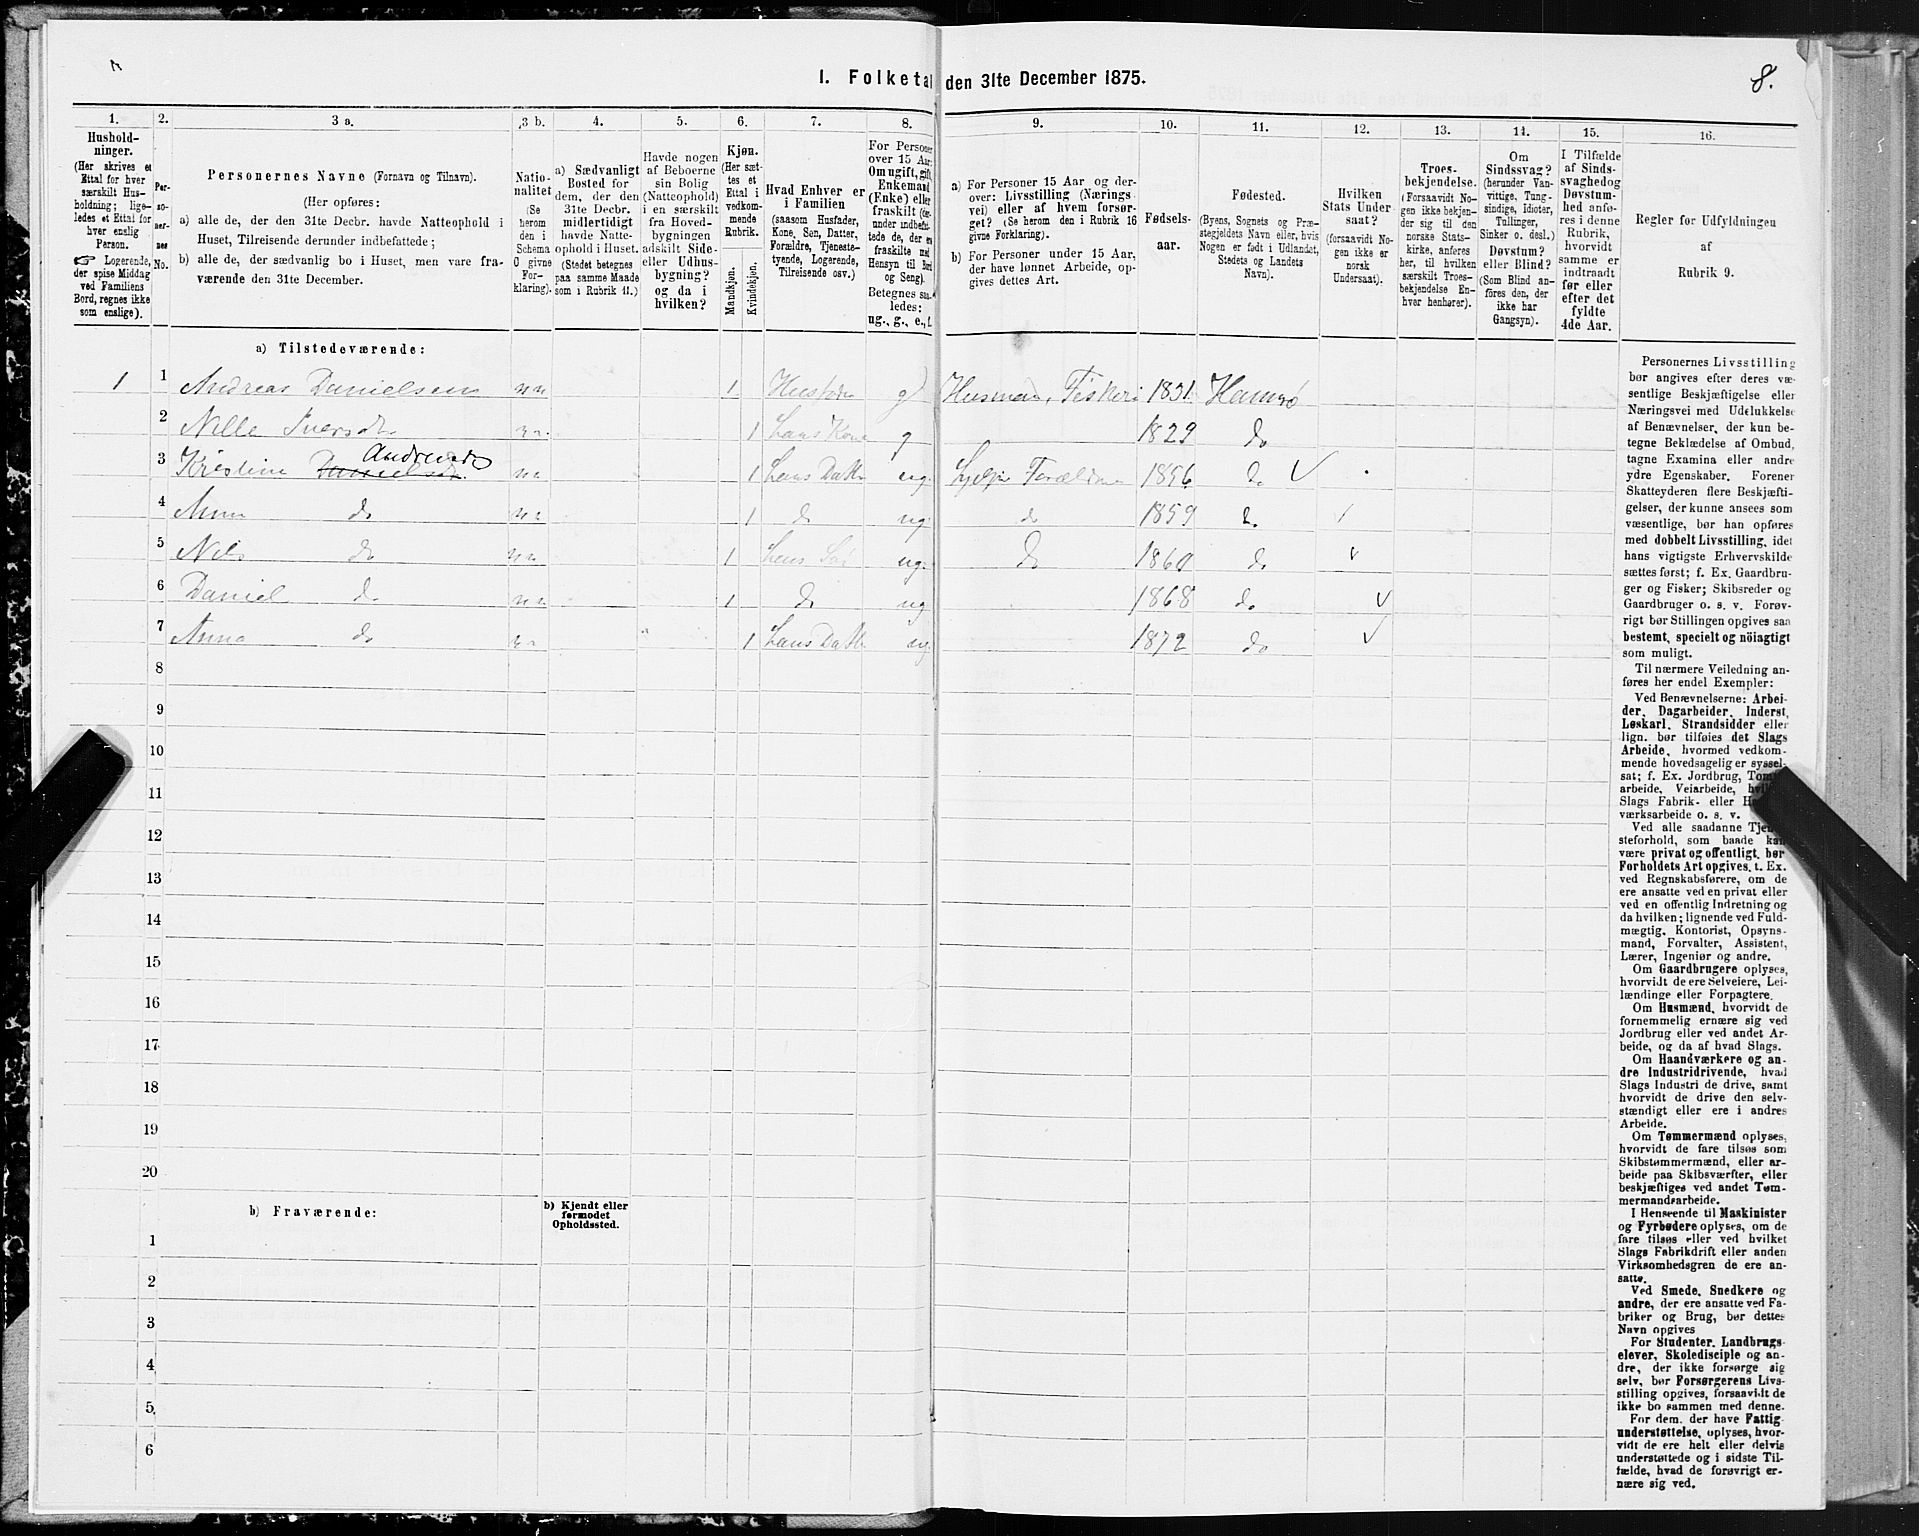 I. Folketal den 31te December 1875.
8.
1. 2. 3 a. 3 b. 4. 5. 6. 7. 8. 9. 10. 11. 12. 13. 14. 15. 16.
Hushold-
ninger.
(Her skrives et
Ettal for hver
særskilt Hus-
holdning; lige-
ledes et Ettal for
hver enslig
Person.
☞ Logerende,
der spise Middag
ved Familiens
Bord, regnes ikke
som enslige).
Per-
so-
ner-
nes
No.
Personernes Navne (Fornavn og Tilnavn).
(Her opføres:
a) alle de, der den 31te Decbr. havde Natteophold i
Huset, Tilreisende derunder indbefattede;
b) alle de, der sædvanlig bo i Huset, men vare fra-
værende den 31te December.
Natio-
nalitet
(Se
herom
den i
Schema
O givne
For-
klaring).
a) Sædvanligt
Bosted for
dem, der den
31te Decbr.
midlertidigt
havde Natte-
ophold i Huset.
(Stedet betegnes
paa samme Maade
som i Rubrik 11.)
Havde nogen
af Beboerne
sin Bolig
(Natteophold)
i en særskilt
fra Hoved-
bygningen
adskilt Side-
eller Udhus-
bygning?
og da i
hvilken?
Kjøn.
(Her sæt-
tes et
Ettal i
vedkom-
mende
Rubrik.
Mandkjøn.
Kvindekjøn.
Hvad Enhver er
i Familien
(saasom Husfader,
Kone, Søn, Datter,
Forældre, Tjeneste-
tyende, Logerende,
Tilreisende osv.)
For Personer
over 15 Aar:
Om ugift, gift,
Enkemand
(Enke) eller
fraskilt (der-
under indbefat-
tede de, der ere
fraskilte med
Hensyn til Bord
og Seng).
Betegnes saa-
ledes:
ug., g., e., f.
a) For Personer 15 Aar og der-
over: Livsstilling (Nærings-
vei) eller af hvem forsør-
get? (Se herom den i Rubrik 16
givne Forklaring).
b) For Personer under 15 Aar,
der have lønnet Arbeide, op-
gives dettes Art.
Fødsels-
aar.
Fødested.
(Byens, Sognets og Præ-
stegjeldets Navn eller, hvis
Nogen er født i Udlandet,
Stedets og Landets
Navn).
Hvilken
Stats Under-
saat?
(forsaavidt No-
gen ikke er
norsk
Undersaat).
Troes-
bekjendelse.
(Forsaavidt No-
gen ikke bekjen-
der sig til den
norske Stats-
kirke, anføres
her, til hvilken
særskilt Troes-
bekjendelse En-
hver henhører).
Om
Sindssvag?
(herunder Van-
vittige, Tung-
sindige, Idioter,
Tullinger,
Sinker o. desl.)
Døvstum?
eller Blind?
(Som Blind an-
føres den, der
ikke har
Gangsyn).
I Tilfælde
af Sinds-
svaghed og
Døvstum-
hed anfø-
res i denne
Rubrik,
hvorvidt
samme er
indtraadt
før eller
efter det
fyldte
4de Aar.
Regler for Udfyldningen
af
Rubrik 9.
a) Tilstedeværende:
1 1 Andreas Danielsen 1 g Husmand, Fiskeri 1831 Hamrø
2 Nille Iversdtr 1 Hans Kone g 1829 do
Andreasd
3 Kristine 1 Hans Datter ug. Hjelper Forældrene 1856 do
4 Anna do 1 do ug. do 1859 do
5 Nils do 1 Hans Søn ug. do 1860 do
6 Daniel do 1 do ug 1868 do
7 Anna do 1 Hans Datter ug 1872 do
8
9
10
11
12
13
14
15
16
17
18
19
20
b) Fraværende:
b) Kjendt eller
formodet
Opholdssted.
1
2
3
4
5
6
Personernes Livsstilling
bør angives efter deres væ-
sentlige Beskjæftigelse eller
Næringsvei med Udelukkelse
af Benævnelser, der kun be-
tegne Beklædelse af Ombud,
tagne Examina eller andre
ydre Egenskaber. Forener
Skatteyderen flere Beskjæfti-
gelser, der kunne ansees som
væsentlige, bør han opføres
med dobbelt Livsstilling, idet
hans vigtigste Erhvervskilde
sættes først; f. Ex. Gaardbru-
ger og Fisker; Skibsreder og
Gaardbruger o. s. v. Forøv-
rigt bør Stillingen opgives saa
bestemt, specielt og nöiagtigt
som muligt.
Til nærmere Veiledning an-
føres her endel Exempler:
Ved Benævnelserne: Arbei-
der, Dagarbeider, Inderst,
Løskarl, Strandsidder eller
lign. bør tilføies det Slags
Arbeide, hvormed vedkom-
mende hovedsagelig er syssel-
sat; f. Ex. Jordbrug,
arbeide, Veiarbeide,
Slags Fabrik- eller
værksarbeide o. s. v.
Ved alle saadanne
steforhold, som baade kan
være privat og offentligt, bør
Forholdets Art opgives, t. Ex.
ved Regnskabsførere, om de
ere ansatte ved en privat eller
ved en offentlig Indretning og
da hvilken; lignende ved Fuld-
mægtig, Kontorist, Opsyns-
mand, Forvalter, Assistent,
Lærer, Ingeniør og andre.
Om Gaardbrugere oplyses,
hvorvidt de ere Selveiere, Lei-
lændinge eller Forpagtere.
Om Husmænd, hvorvidt de
fornemmelig ernære sig ved
Jordbrug eller ved andet Ar-
beide, og da af hvad Slags.
Om Haandværkere og an-
dre Industridrivende, hvad
Slags Industri de drive, samt
hvorvidt de drive den selv-
stændigt eller ere i andres
Arbeide.
Om Tømmermænd oplyses,
hvorvidt de fare tilsøs som
Skibstømmermænd, eller ar-
beide paa Skibsværfter, eller
beskjæftiges ved andet Tøm-
mermandsarbeide.
I Henseende til Maskinister
og Fyrbødere oplyses, om de
fare tilsøs eller ved hvilket
Slags Fabrikdrift eller anden
Virksomhedsgren de ere an-
satte.
Ved Smede, Snedkere og
andre, der ere ansatte ved Fa-
briker og Brug, bør dettes
Navn opgives
For Studenter, Landbrugs-
elever, Skoledisciple og an-
dre, der ikke forsørge sig
selv, bør Forsørgerens Livs-
stilling opgives, forsaavidt de
ikke bo sammen med denne.
For dem, der have Fattig-
understøttelse, oplyses, hvor-
vidt de ere helt eller delvis
understøttede og i sidste Til-
fælde, hvad de forøvrigt er-
nære sig ved.